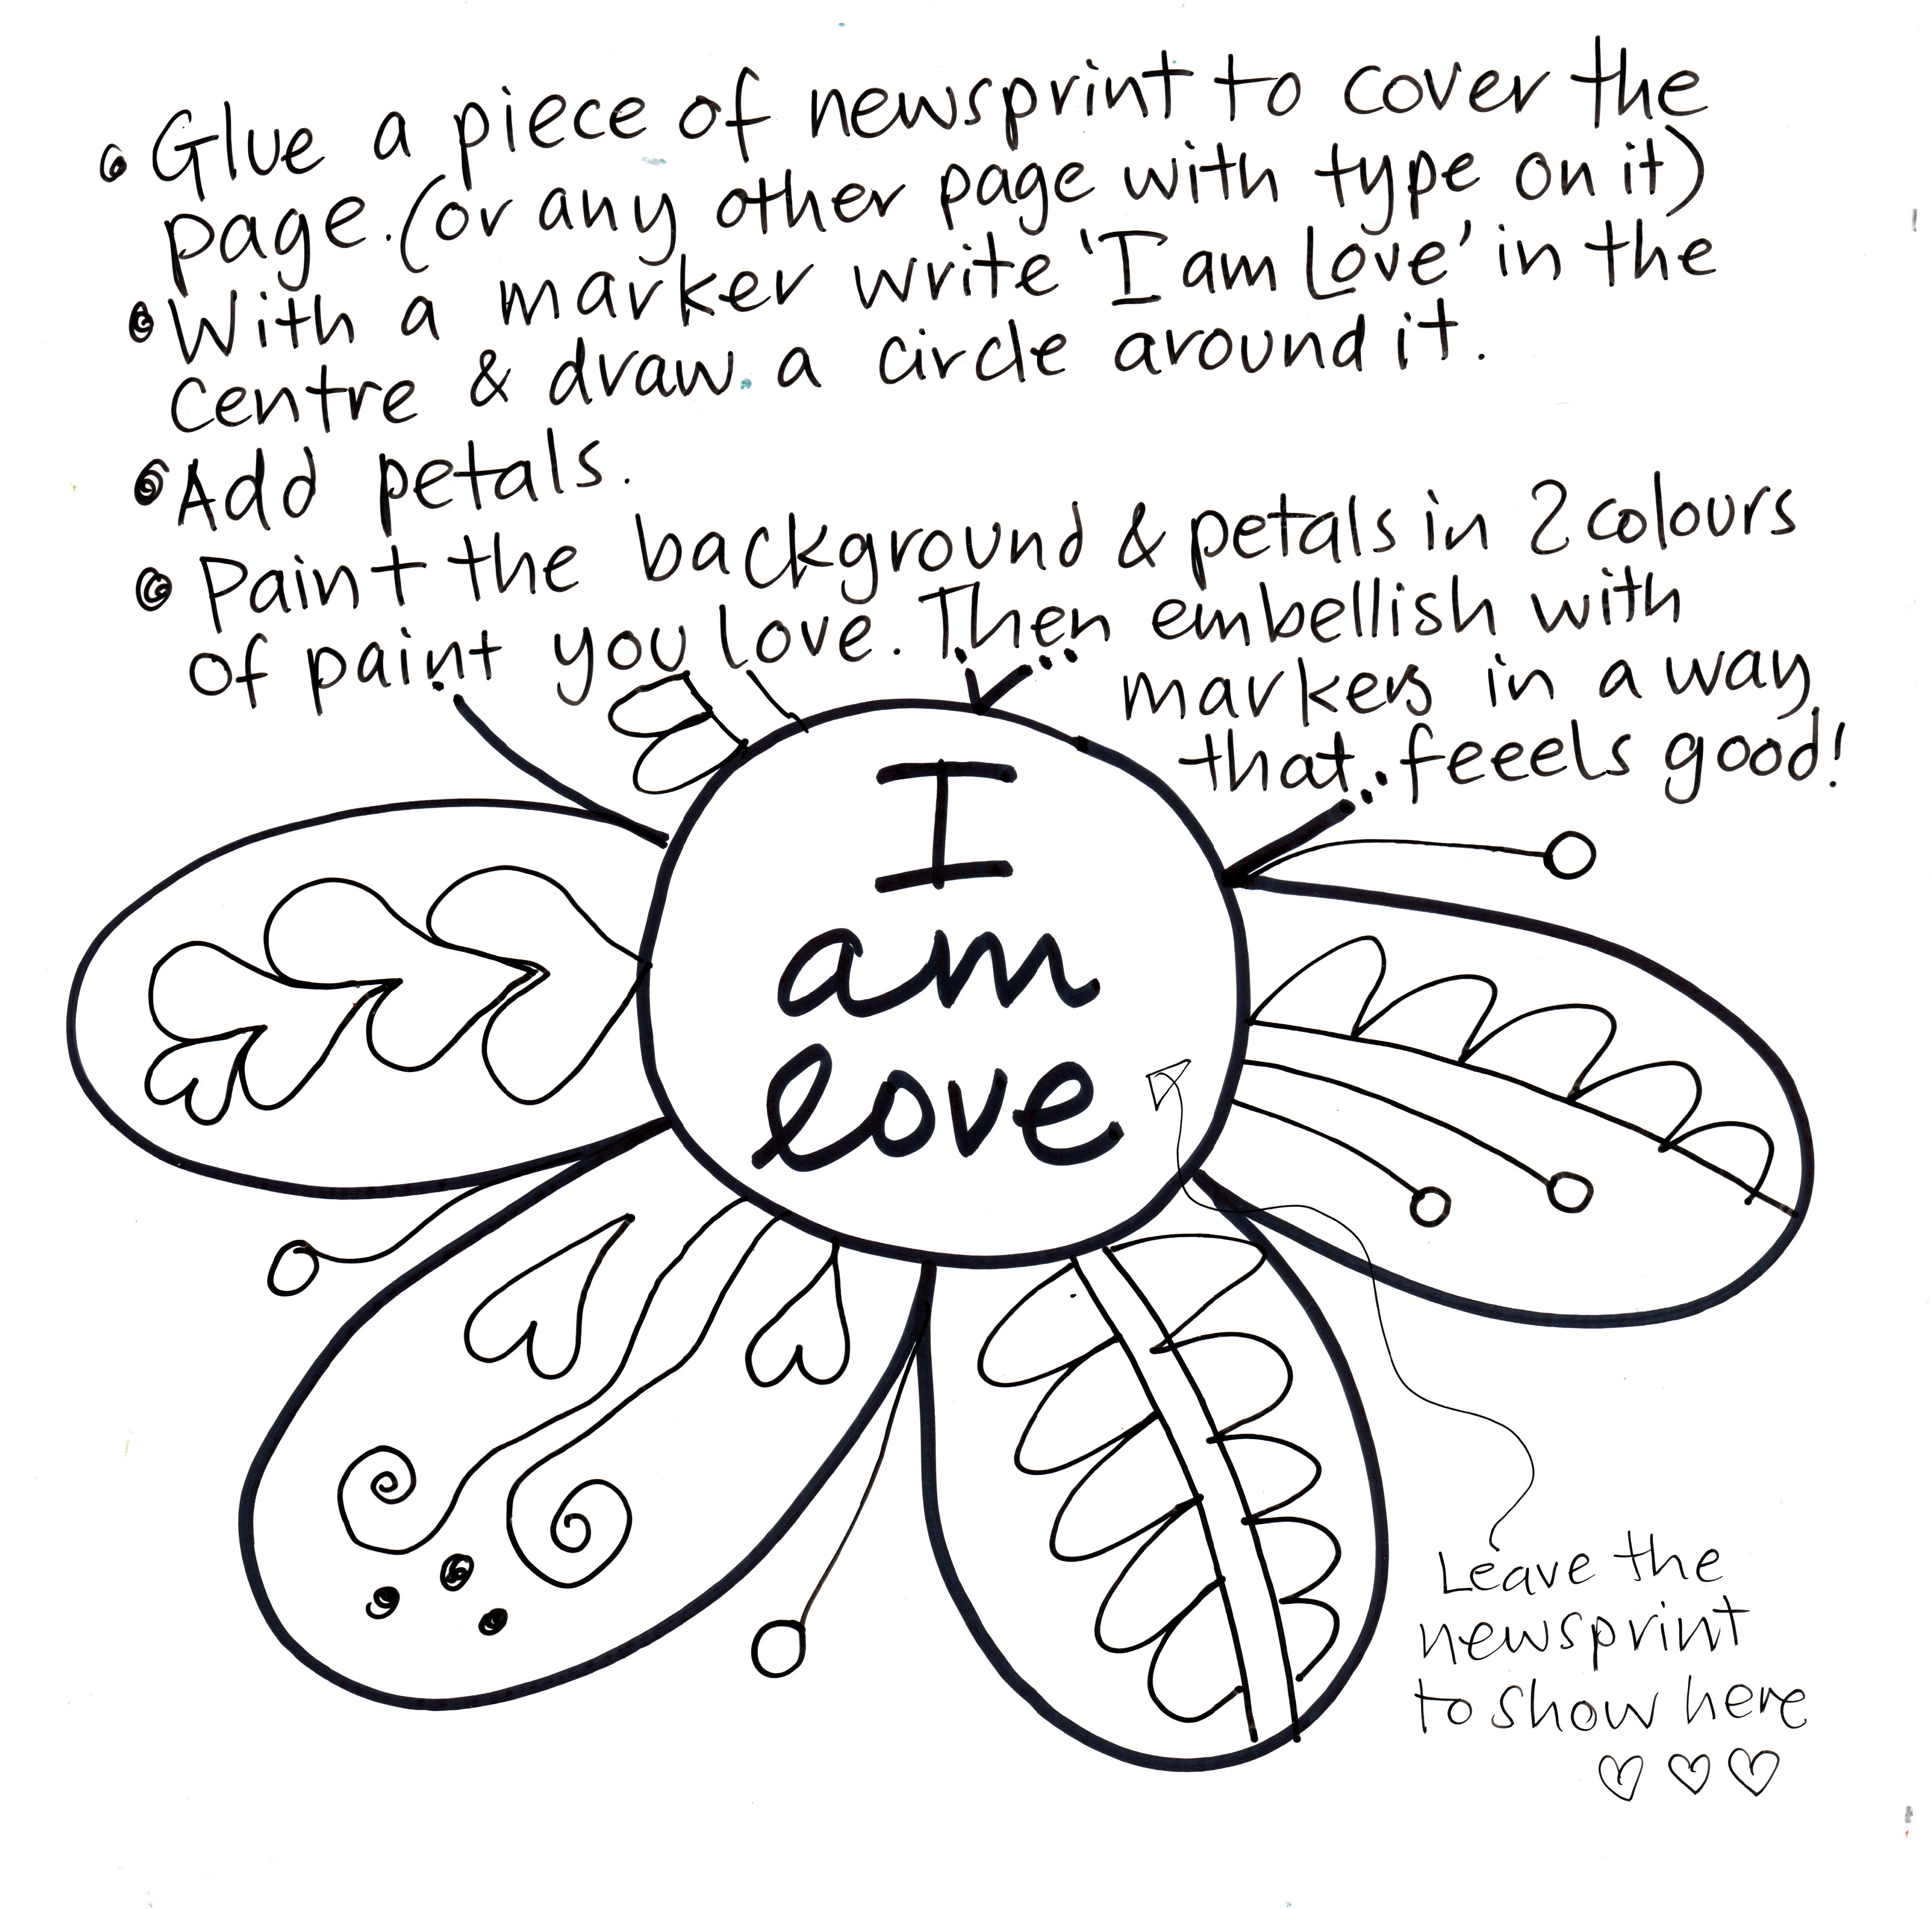 Glue a piece of newsprint to cover the
page. (or any other page with type on it)
With a marker write 'I am Love' in the
Centre & draw a circle around it.
Add petals.
Paint the background & petals in 2 colours
of paint you love. Then embellish with
markers in a way
that feeels good!
I
am
love
Leave the
newsprint
to show here